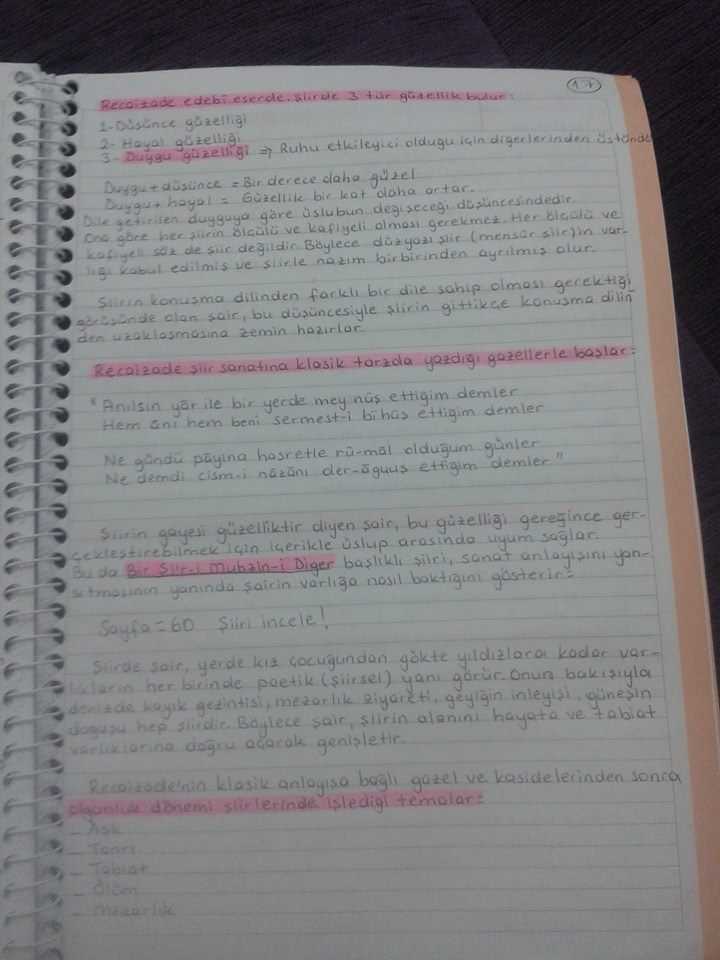 17
Recaizade edebî eserde, şiirde 3 tür güzellik bulur:
1- Düşünce güzelliği
2- Hayal güzelliği
3- Duygu güzelliği ⇒ Ruhu etkileyici olduğu için diğerlerinden üstündü
Duygu + düşünce = Bir derece daha güzel
Duygu + hayal = Güzellik bir kat daha artar.
Dile getirilen duyguya göre üslubun değişeceği düşüncesindedir.
Ona göre her şiirin ölçülü ve kafiyeli olması gerekmez. Her ölçülü ve
kafiyeli söz de şiir değildir. Böylece düzyazı şiir (mensûr şiir)in var-
lığı kabul edilmiş ve şiirle nazım birbirinden ayrılmış olur.
Şiirin konuşma dilinden farklı bir dile sahip olması gerektiği
görüşünde olan şair, bu düşüncesiyle şiirin gittikçe konuşma dilin
den uzaklaşmasına zemin hazırlar.
Recaizade şiir sanatına klasik tarzda yazdığı gazellerle başlar:
" Anılsın yâr ile bir yerde mey nûş ettiğim demler
Hem ânı hem beni sermest-i bîhûş ettiğim demler
Ne gündü pâyına hasretle rû-mâl olduğum günler
Ne demdi cism-i nâzânı der-âguuş ettiğim demler "
Şiirin gayesi güzelliktir diyen şair, bu güzelliği gereğince ger-
çekleştirebilmek için içerikle üslup arasında uyum sağlar.
Bu da Bir Şiir-i Muhzin-i Diğer başlıklı şiiri, sanat anlayışını yan-
sıtmasının yanında şairin varlığa nasıl baktığını gösterir:
Sayfa = 60 Şiiri incele!
Şiirde şair, yerde kız çocuğundan gökte yıldızlara kadar var-
lıkların her birinde poetik (şiirsel) yanı görür. Onun bakışıyla
denizde kayık gezintisi, mezarlık ziyareti, geyiğin inleyişi, güneşin
doğuşu hep şiirdir. Böylece şair, şiirin alanını hayata ve tabiat
varlıklarına doğru açarak genişletir.
Recaizade'nin klasik anlayışa bağlı gazel ve kasidelerinden sonra
olgunluk dönemi şiirlerinde işlediği temalar:
- Aşk
- Tanrı
- Tabiat
- Ölüm
- Mezarlık